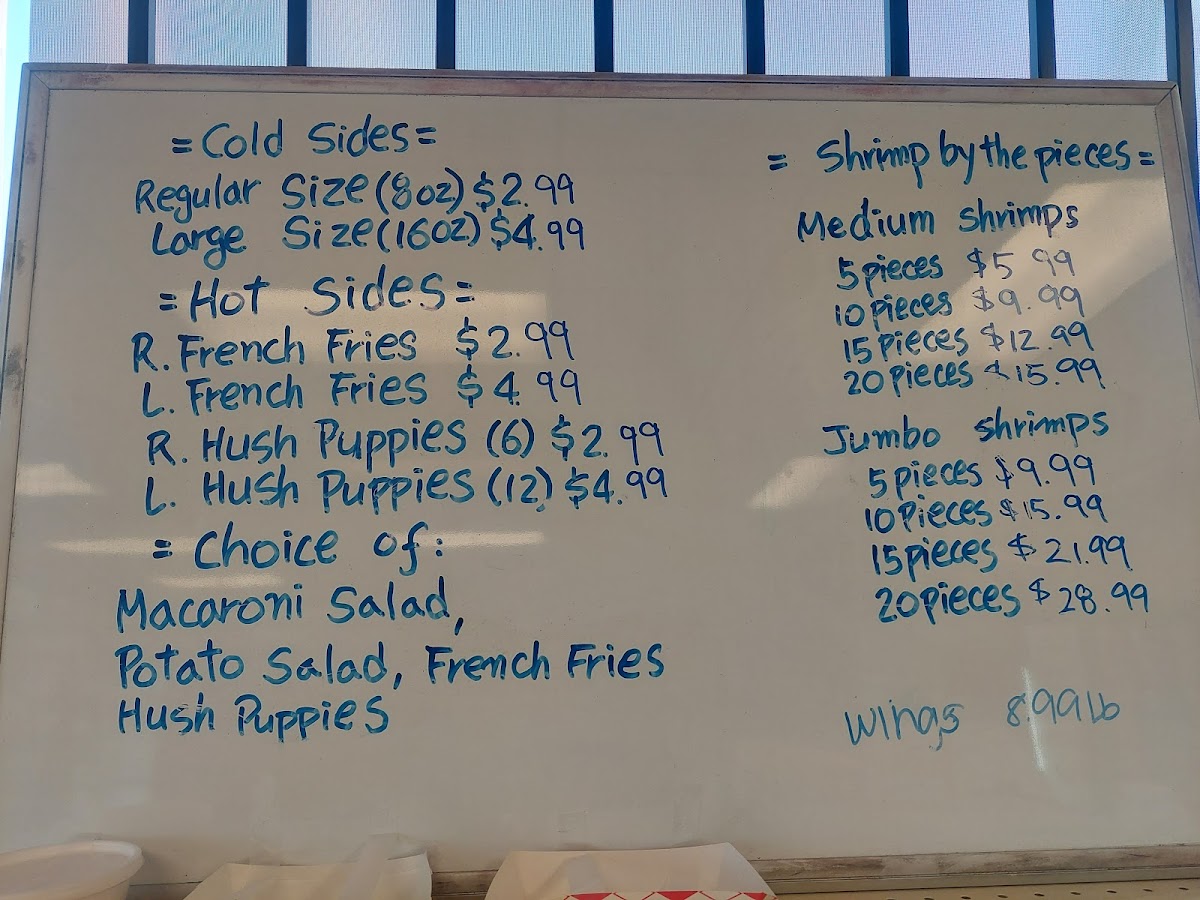 = Cold Sides =
Regular Size (8oz) $2.99
Large Size (16oz) $4.99
= Hot Sides =
R. French Fries $2.99
L. French Fries $4.99
R. Hush Puppies (6) $2.99
L. Hush Puppies (12) $4.99
= Choice of:
Macaroni Salad,
Potato Salad, French Fries
Hush Puppies
= Shrimp by the pieces =
Medium shrimps
5 pieces $5 99
10 pieces $9.99
15 pieces $12.99
20 pieces $15.99
Jumbo shrimps
5 pieces $9.99
10 pieces $15.99
15 pieces $21.99
20 pieces $28.99
Wings 8.99 lb